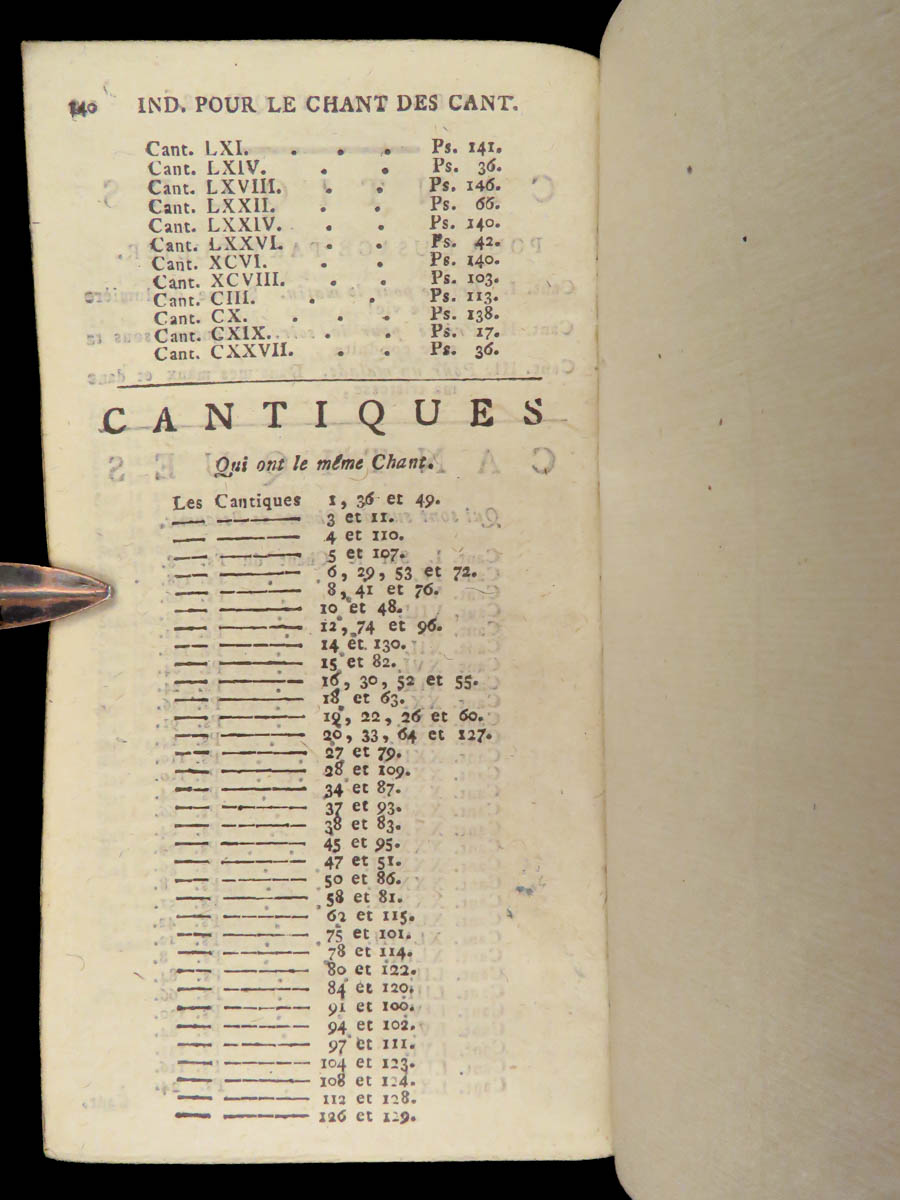 140 IND. POUR LE CHANT DES CANT.
Cant. LXI. . . . Ps. 141.
Cant. LXIV. . . Ps. 36.
Cant. LXVIII. . . Ps. 146.
Cant. LXXII. . . Ps. 66.
Cant. LXXIV. . . Ps. 140.
Cant. LXXVI. . . Ps. 42.
Cant. XCVI. . . Ps. 140.
Cant. XCVIII. . . Ps. 103.
Cant. CIII. . . Ps. 113.
Cant. CX. . . . Ps. 138.
Cant. CXIX. . . Ps. 17.
Cant. CXXVII. . . Ps. 36.
CANTIQUES
Qui ont le même Chant.
Les Cantiques 1, 36 et 49.
— — 3 et 11.
— — 4 et 110.
— — 5 et 107.
— — 6, 29, 53 et 72.
— — 8, 41 et 76.
— — 10 et 48.
— — 12, 74 et 96.
— — 14 et 130.
— — 15 et 82.
— — 16, 30, 52 et 55.
— — 18 et 63.
— — 19, 22, 26 et 60.
— — 20, 33, 64 et 127.
— — 27 et 79.
— — 28 et 109.
— — 34 et 87.
— — 37 et 93.
— — 38 et 83.
— — 45 et 95.
— — 47 et 51.
— — 50 et 86.
— — 58 et 81.
— — 62 et 115.
— — 75 et 101.
— — 78 et 114.
— — 80 et 122.
— — 84 et 120.
— — 91 et 100.
— — 94 et 102.
— — 97 et 111.
— — 104 et 123.
— — 108 et 124.
— — 112 et 128.
— — 126 et 129.